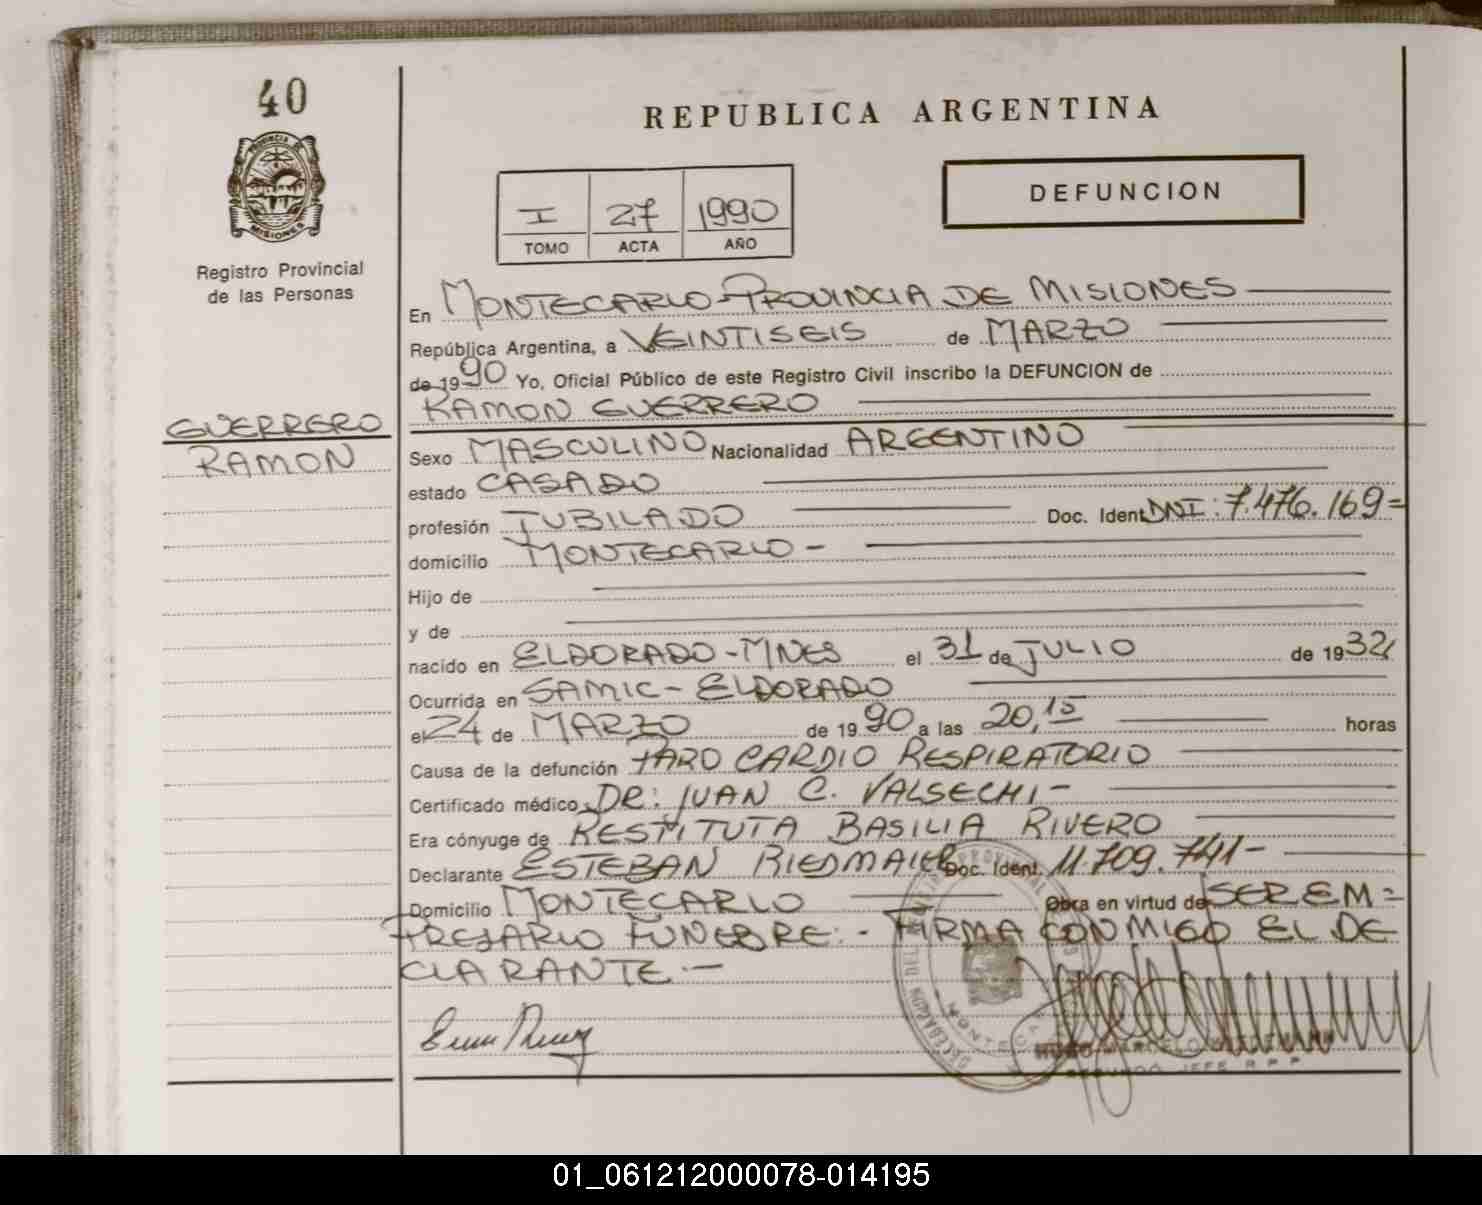 40
PROVINCIA DE
MISIONES
Registro Provincial
de las Personas
GUERRERO
RAMON
REPUBLICA ARGENTINA
I 27 1990
TOMO ACTA AÑO
DEFUNCION
En MONTECARLO-PROVINCIA DE MISIONES
República Argentina, a VEINTISEIS de MARZO
de 1990 Yo, Oficial Público de este Registro Civil inscribo la DEFUNCION de
RAMON GUERRERO
Sexo MASCULINO Nacionalidad ARGENTINO
estado CASADO
profesión JUBILADO Doc. Ident. DNI: 7.476.169=
domicilio MONTECARLO-
Hijo de
y de
nacido en ELDORADO-MNES el 31 de JULIO de 1932
Ocurrida en SAMIC-ELDORADO
el 24 de MARZO de 1990 a las 20,15 horas
Causa de la defunción PARO CARDIO RESPIRATORIO
Certificado médico DR: JUAN C. VALSECHI-
Era cónyuge de RESTITUTA BASILIA RIVERO
Declarante ESTEBAN RIEDMAIER Doc. Ident. 11.709.741-
Domicilio MONTECARLO Obra en virtud de SER EM=
PRESARIO FUNEBRE:- FIRMA CONMIGO EL DE
CLARANTE.-
SEGUNDO JEFE R P P
01_061212000078-014195